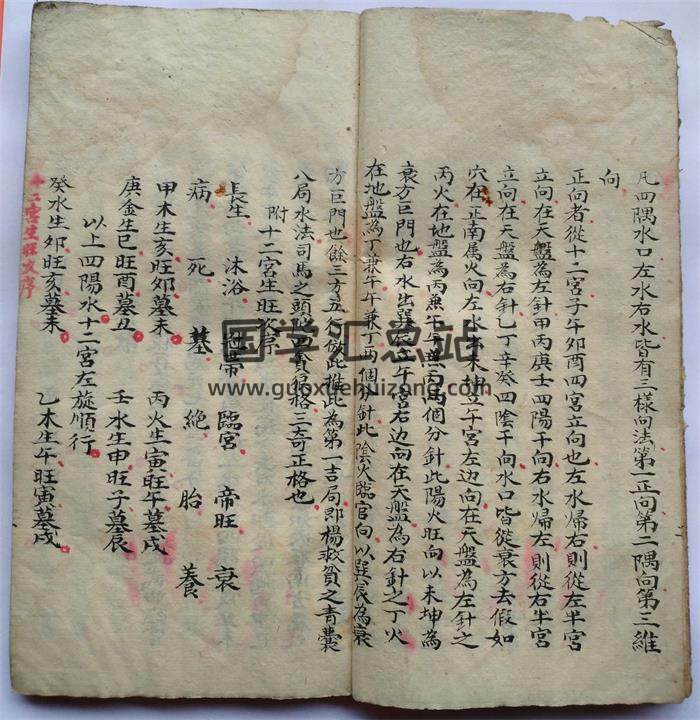 凡四隅水口左水右水皆有三樣向法第一正向第二隅向第三維
向
正向者從十二宮子午卯酉四宮立向也左水歸右則從左半宮
立向在天盤為左針甲丙庚壬四陽干向右水歸左則從右半宮
立向在天盤為右針乙丁辛癸四陰干向水口皆從衰方去假如
穴在正南属火向左水未坤立午宮左边向在天盤為左針之
丙火在地盤為丙兼午午兼丙两個分針此陽火旺向以未坤為
衰方巨門也右水出巽辰立午宮右边向在天盤為右針之丁火
在地盤為丁兼午午兼丁两個分針此陰火臨官向以巽辰為衰
方巨門也餘三方五行倣此推此為第一吉局即楊救貧之青囊
八局水法司馬之頭格三奇正格也
附十二宮生旺次序
長生 沐浴 冠帶 臨官 帝旺 衰
病 死 墓 絶 胎 養
甲木生亥旺卯墓未 丙火生寅旺午墓戌
庚金生巳旺酉墓丑 壬水生申旺子墓辰
以上四陽水十二宮左旋順行
癸水生卯旺亥墓未 乙木生午旺寅墓戌
十二宮生旺次序
国学汇总站
www.guoxuehuizong.com